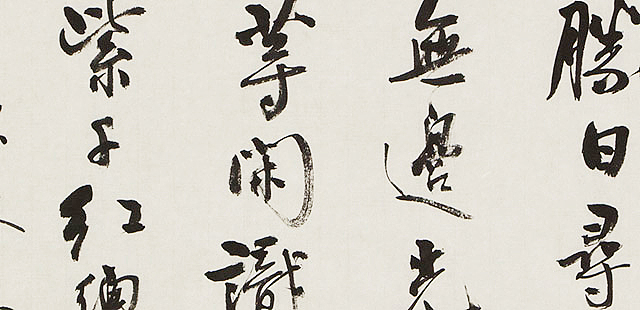 勝日尋
無邊光
等閑識
紫千紅總